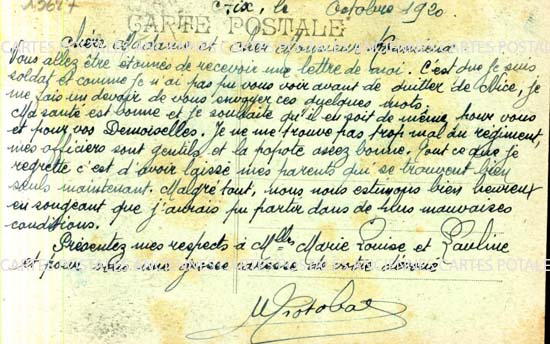 13647
Aix, le Octobre 1920
CARTE POSTALE
Chère Madame et Cher Monsieur
Vous allez être étonnés de recevoir une lettre de moi. C'est que je suis
soldat et comme je n'ai pas pu vous voir avant de quitter Nice, je
me fais un devoir de vous envoyer ces quelques mots.
Ma santé est bonne et je souhaite qu'il en soit de même pour vous
et pour vos Demoiselles. Je ne me trouve pas trop mal du régiment,
mes officiers sont gentils et la popote assez bonne. Tout ce que je
regrette c'est d'avoir laissé mes parents qui se trouvent bien
seuls maintenant. Malgré tout, nous nous estimons bien heureux
en songeant que j'aurais pu partir dans de plus mauvaises
conditions.
Présentez mes respects à Mlles Marie Louise et Pauline
et pour vous une grosse caresse de votre dévoué